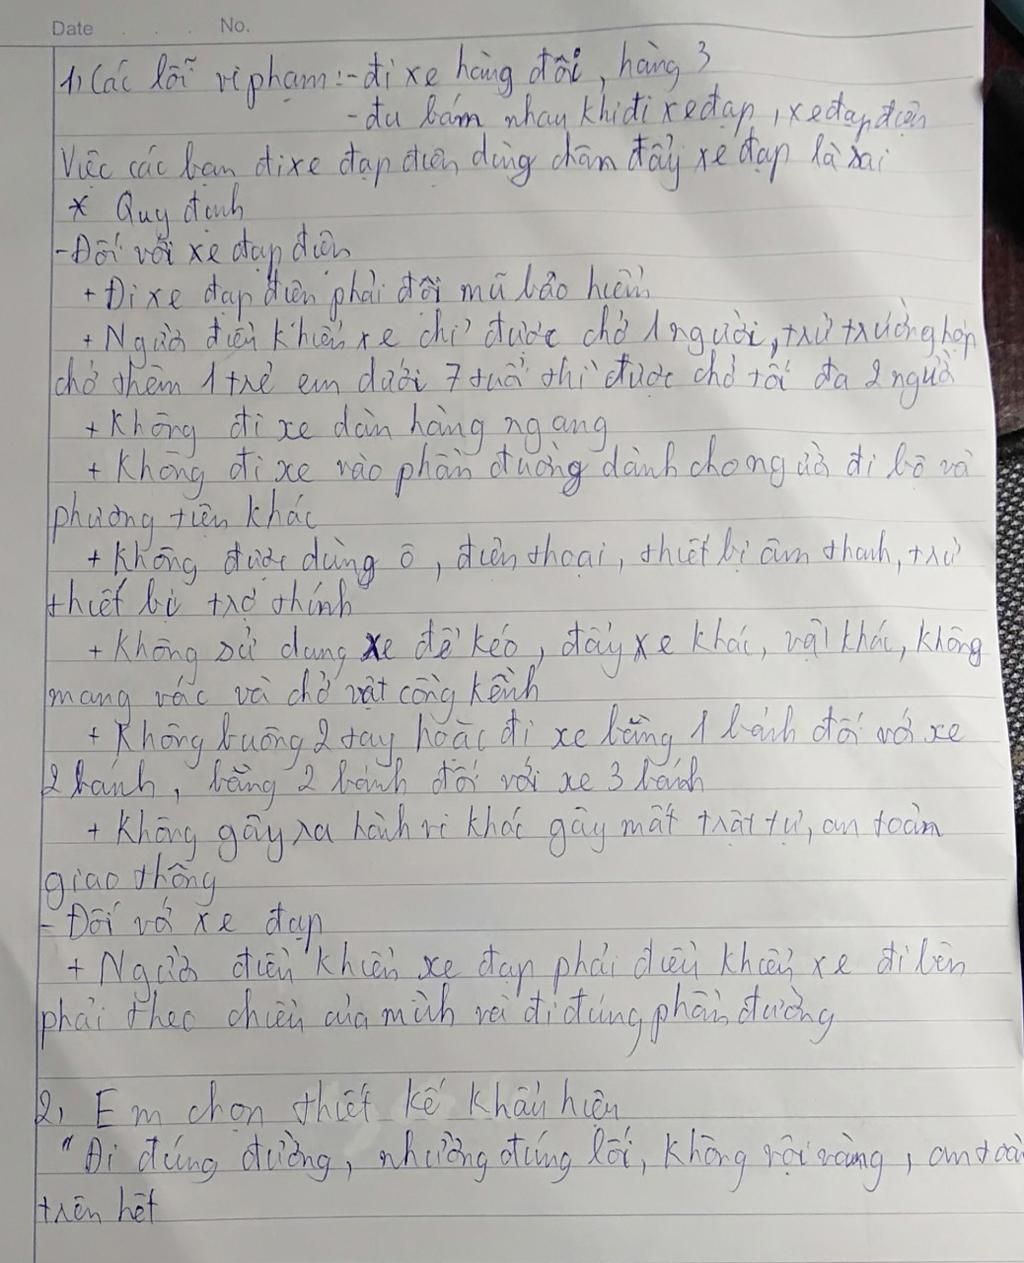 Date . . . No.
1, Các lỗi vi phạm: - đi xe hàng đôi, hàng 3
- đu bám nhau khi đi xe đạp, xe đạp điện
Việc các bạn đi xe đạp điện dùng chân đẩy xe đạp là sai
* Quy định
- Đối với xe đạp điện
+ Đi xe đạp điện phải đội mũ bảo hiểm
+ Người điều khiển xe chỉ được chở 1 người, trừ trường hợp
chở thêm 1 trẻ em dưới 7 tuổi thì được chở tối đa 2 người
+ Không đi xe dàn hàng ngang
+ Không đi xe vào phần đường dành cho người đi bộ và
phương tiện khác
+ Không được dùng ô, điện thoại, thiết bị âm thanh, trừ
thiết bị trợ thính
+ Không sử dụng xe để kéo, đẩy xe khác, vật khác, không
mang vác và chở vật cồng kềnh
+ Không buông 2 tay hoặc đi xe bằng 1 bánh đối với xe
2 bánh, bằng 2 bánh đối với xe 3 bánh
+ Không gây ra hành vi khác gây mất trật tự, an toàn
giao thông
- Đối với xe đạp
+ Người điều khiển xe đạp phải điều khiển xe đi bên
phải theo chiều của mình và đi đúng phần đường
2, Em chọn thiết kế khẩu hiệu
"Đi đúng đường, nhường đúng lối, không vội vàng, an toà
trên hết